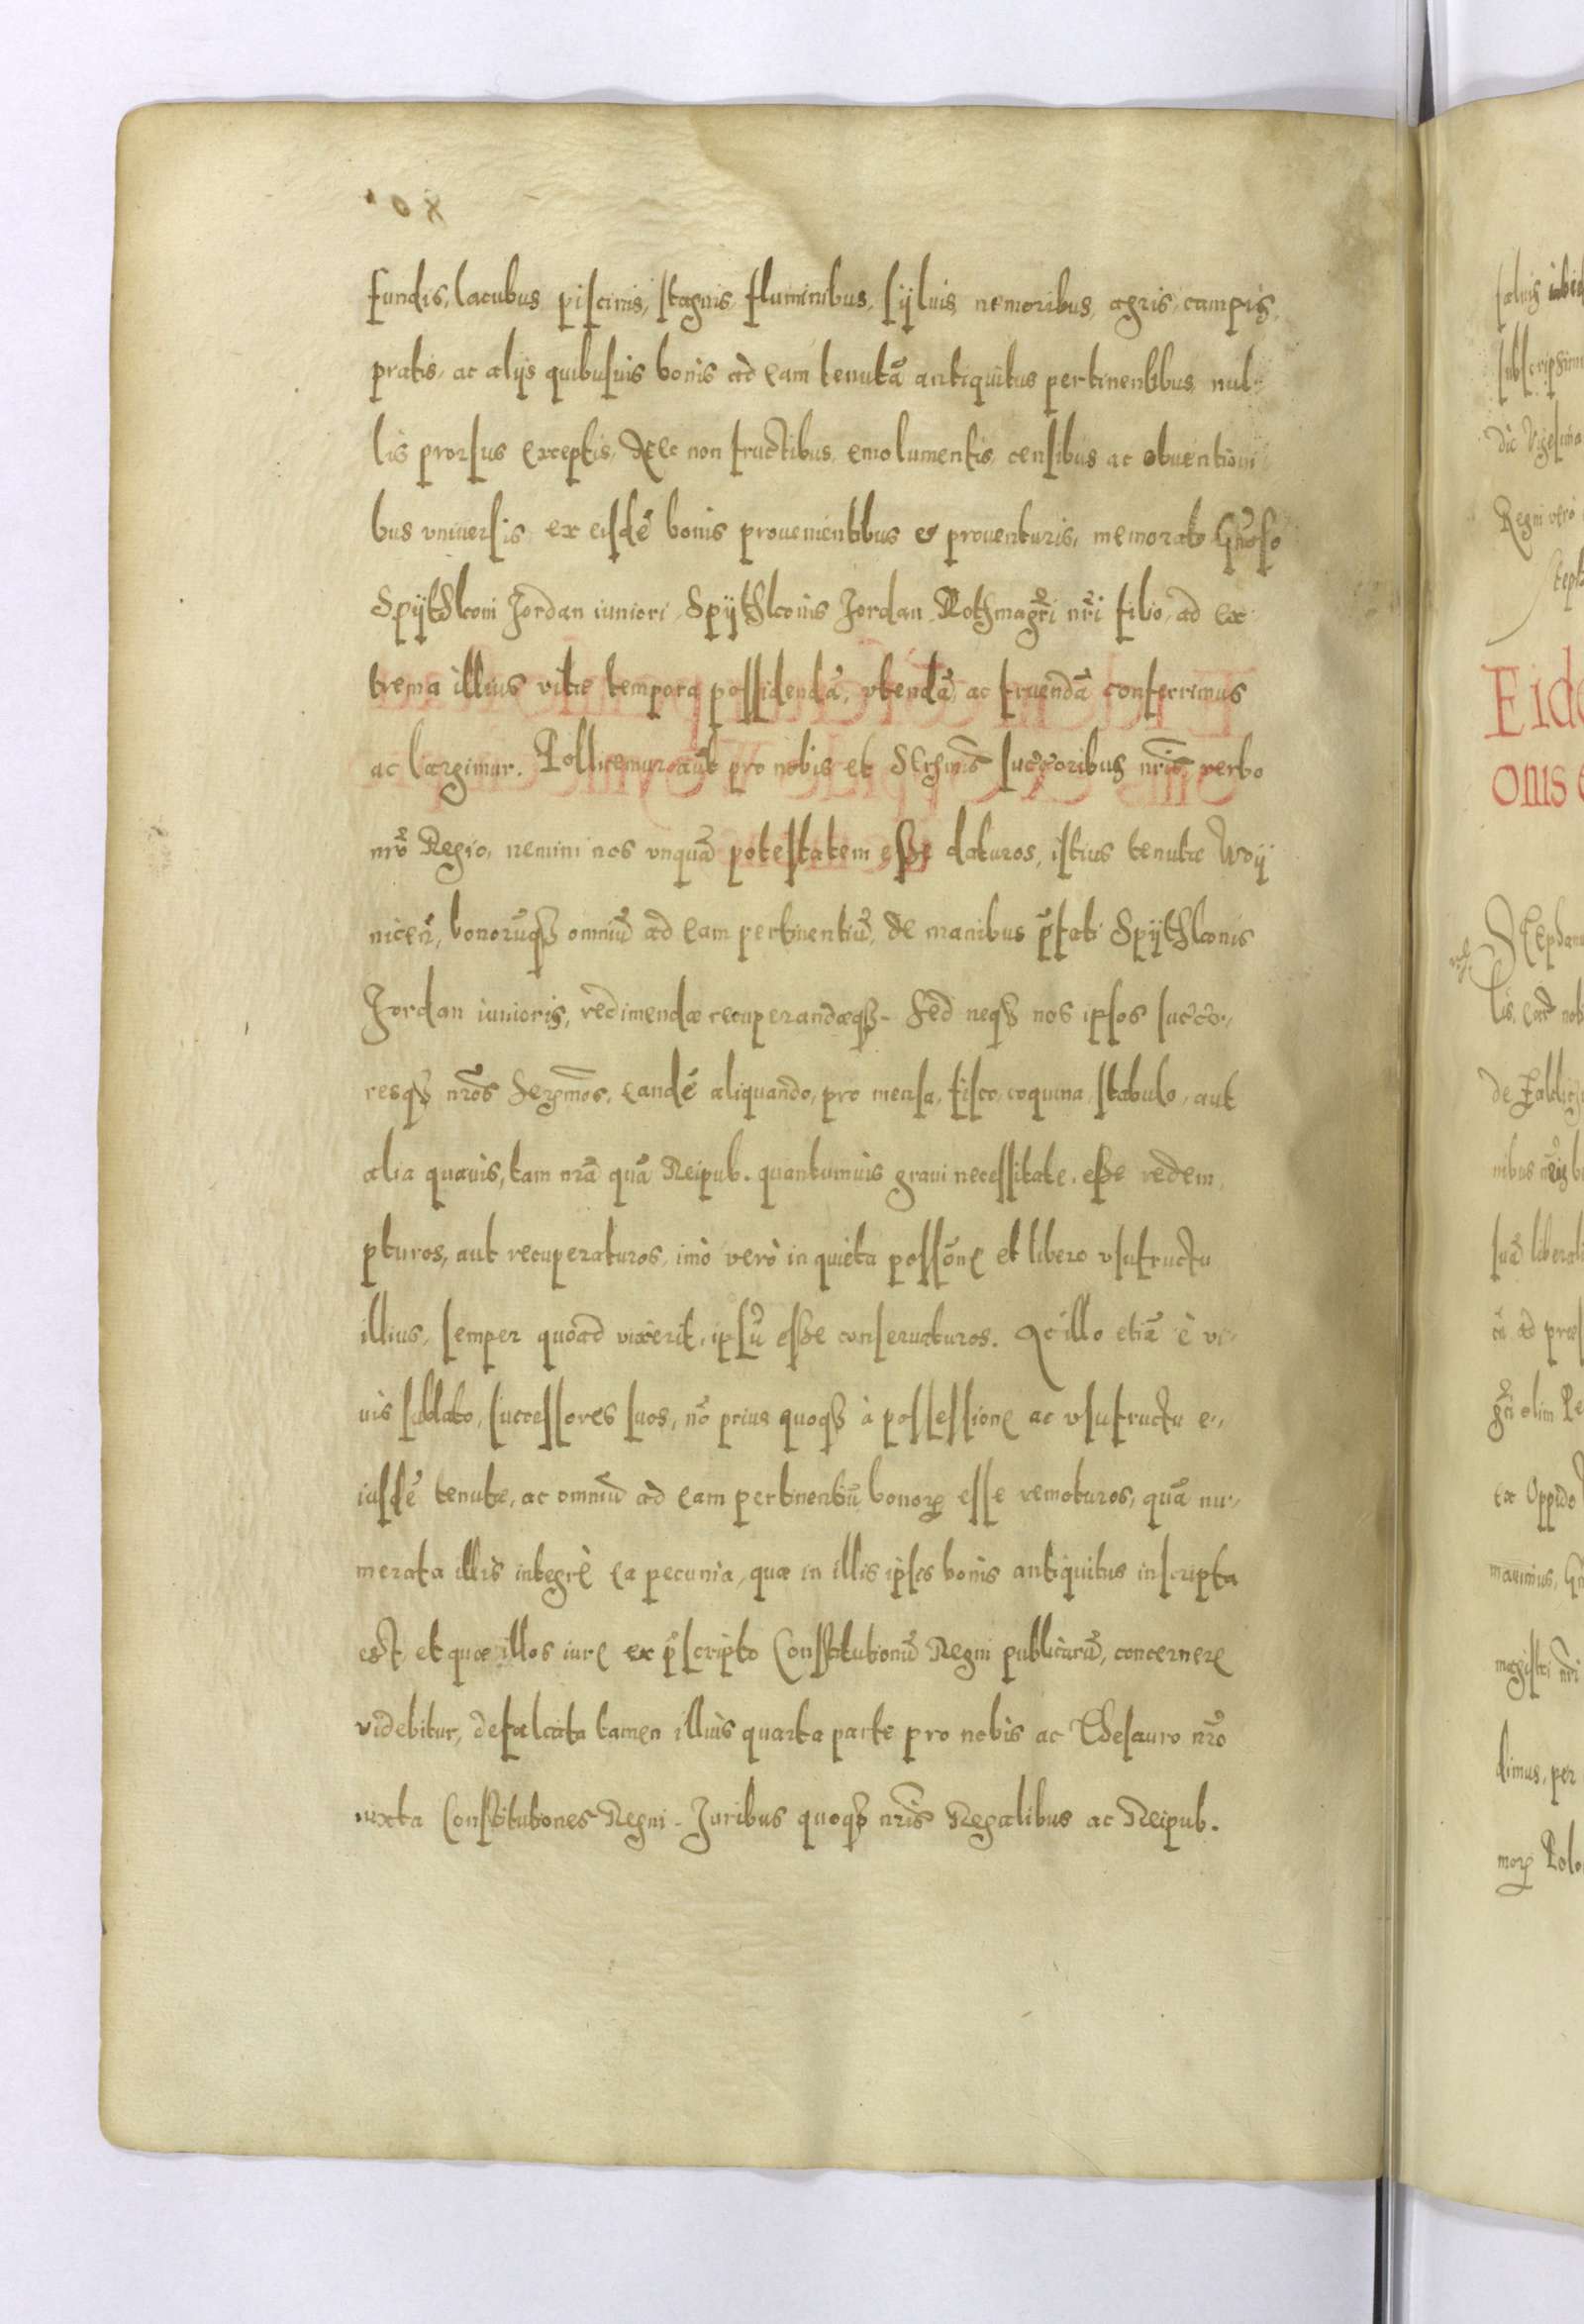 fundis, lacubus piscinis, stagnis fluminibus, sÿluis nemoribus, agris, campis,
pratis, ac alijs quibusuis bonis ad eam tenutā antiquitus pertinentibus, nul-
lis prorsus exceptis, Nec non fructibus, emolumentis, censibus ac obuentioni
bus vniuersis ex eisdē bonis prouenientibus et prouenturis, memorato Gnōso
Spÿthkoni Jordan iuniori, Spÿthkonis Jordan Rothmagr̄i nr̄i filio, ad ex
trema illius vitæ tempora possidendā, vtendā, ac fruendā conferrimus
ac largimur. Pollicemur aūt pro nobis et Serymis succ̄oribus nr̄is, verbo
nrō Regio, nemini nos vnquā potestatem esse daturos, istius tenutæ Woÿ
niceń, bonorūqз omniū ad eam pertinentiū, de manibus p̄fati Spÿthkonis
Jordan iunioris, redimendæ recuperandæqз. Sed neqз nos ipsos succo-
resqз nrōs Serymos, eandē aliquando, pro mensa, fisco, coquina, stabulo, aut
alia quauis, tam nrā quā Reipub. quantumuis graui necessitate, esse redem,
pturos, aut recuperaturos, imò verò in quieta possōne et libero vsufructu
illius, semper quoad vixerit, ipsū esse conseruaturos. Ac illo etiā è vi-
uis sublato, successores suos, nō prius quoqз à possessione ac vsufructu e-
iusdē tenutæ, ac omniū ad eam pertinentiū bonoꝝ esse remoturos, quā nu-
merata illis integrè ea pecunia, quæ in illis ipsis bonis antiquitus inscripta
est, et quæ illos iure ex p̄scripto Constitutionū Regni publicarū, concernere
videbitur, defalcata tamen illius quarta parte pro nobis ac Thesauro nrō
iuxta Constitutiones Regni. Juribus quoqз nrīs Regalibus ac Reipub.